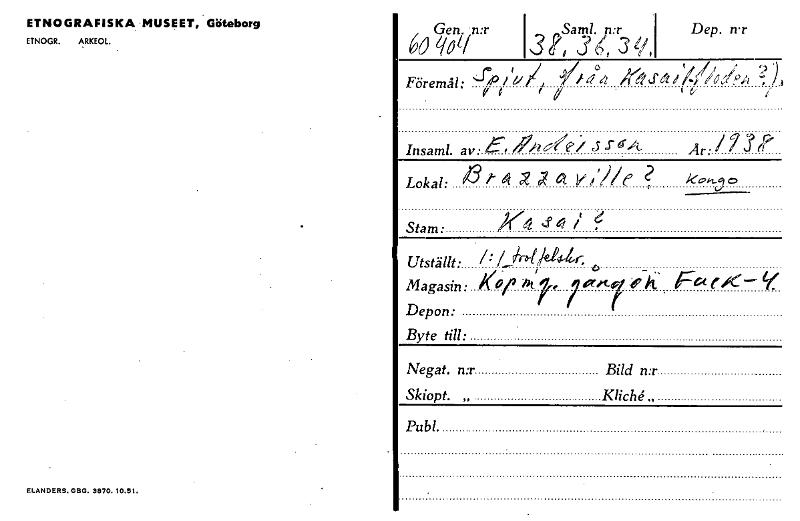 ETNOGRAFISKA MUSEET, Göteborg
ETNOGR. ARKEOL.
Gen. n:r Saml. n:r Dep. n:r
60404 38.36.34.
Föremål: Spjut, från Kasai(floden?).
Insaml. av: E. Andersson År: 1938
Lokal: Brazzaville? Kongo
Stam: Kasai?
Utställt: 1:1
Magasin: Köpmg. Fack-4.
Depon:
Byte till:
Negat. n:r Bild n:r
Skiopt. „ Kliché „
Publ.
ELANDERS, GBG. 3870. 10.51.